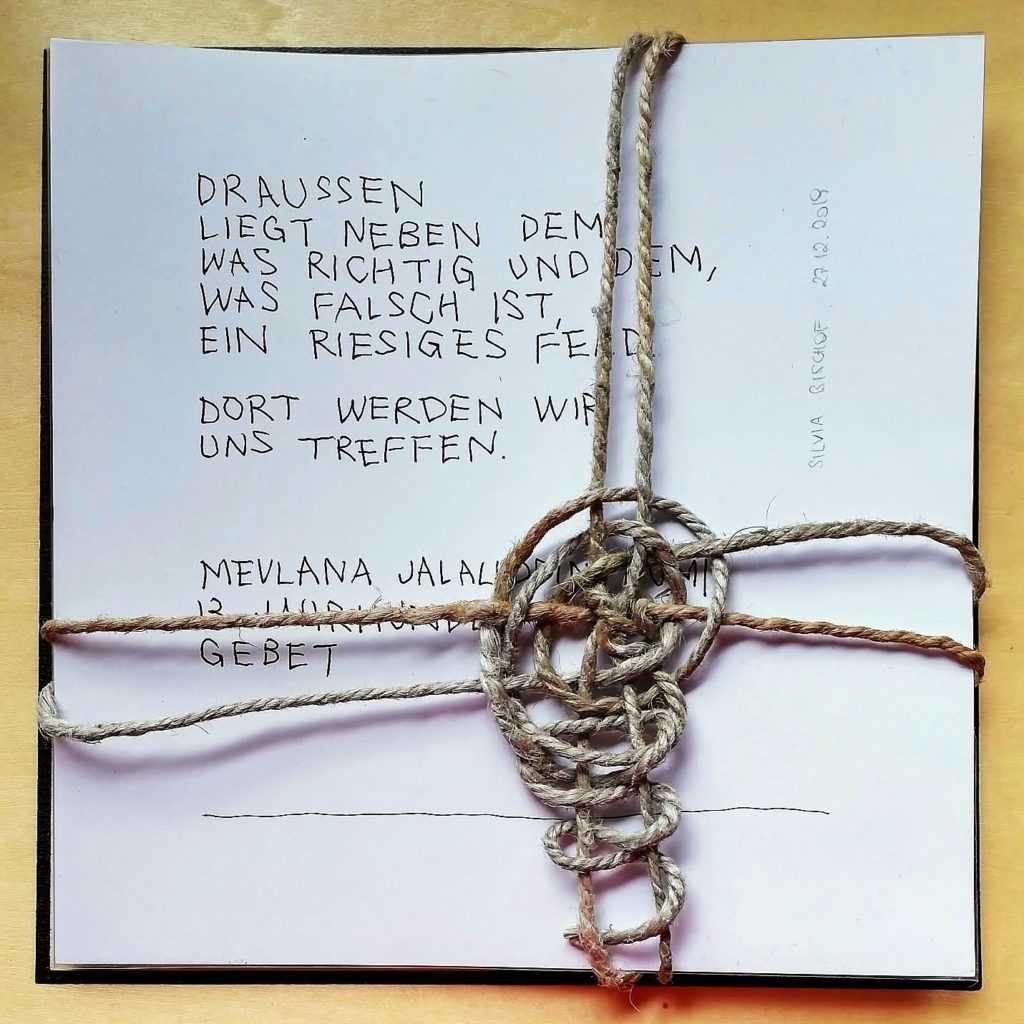 DRAUSSEN
LIEGT NEBEN DEM
WAS RICHTIG UND DEM,
WAS FALSCH IST,
EIN RIESIGES FELD.
DORT WERDEN WIR
UNS TREFFEN.
MEVLANA JALALUDDIN RUMI
13. JAHRHUNDERT
GEBET
SILVIA BISCHOF, 27.12.2019